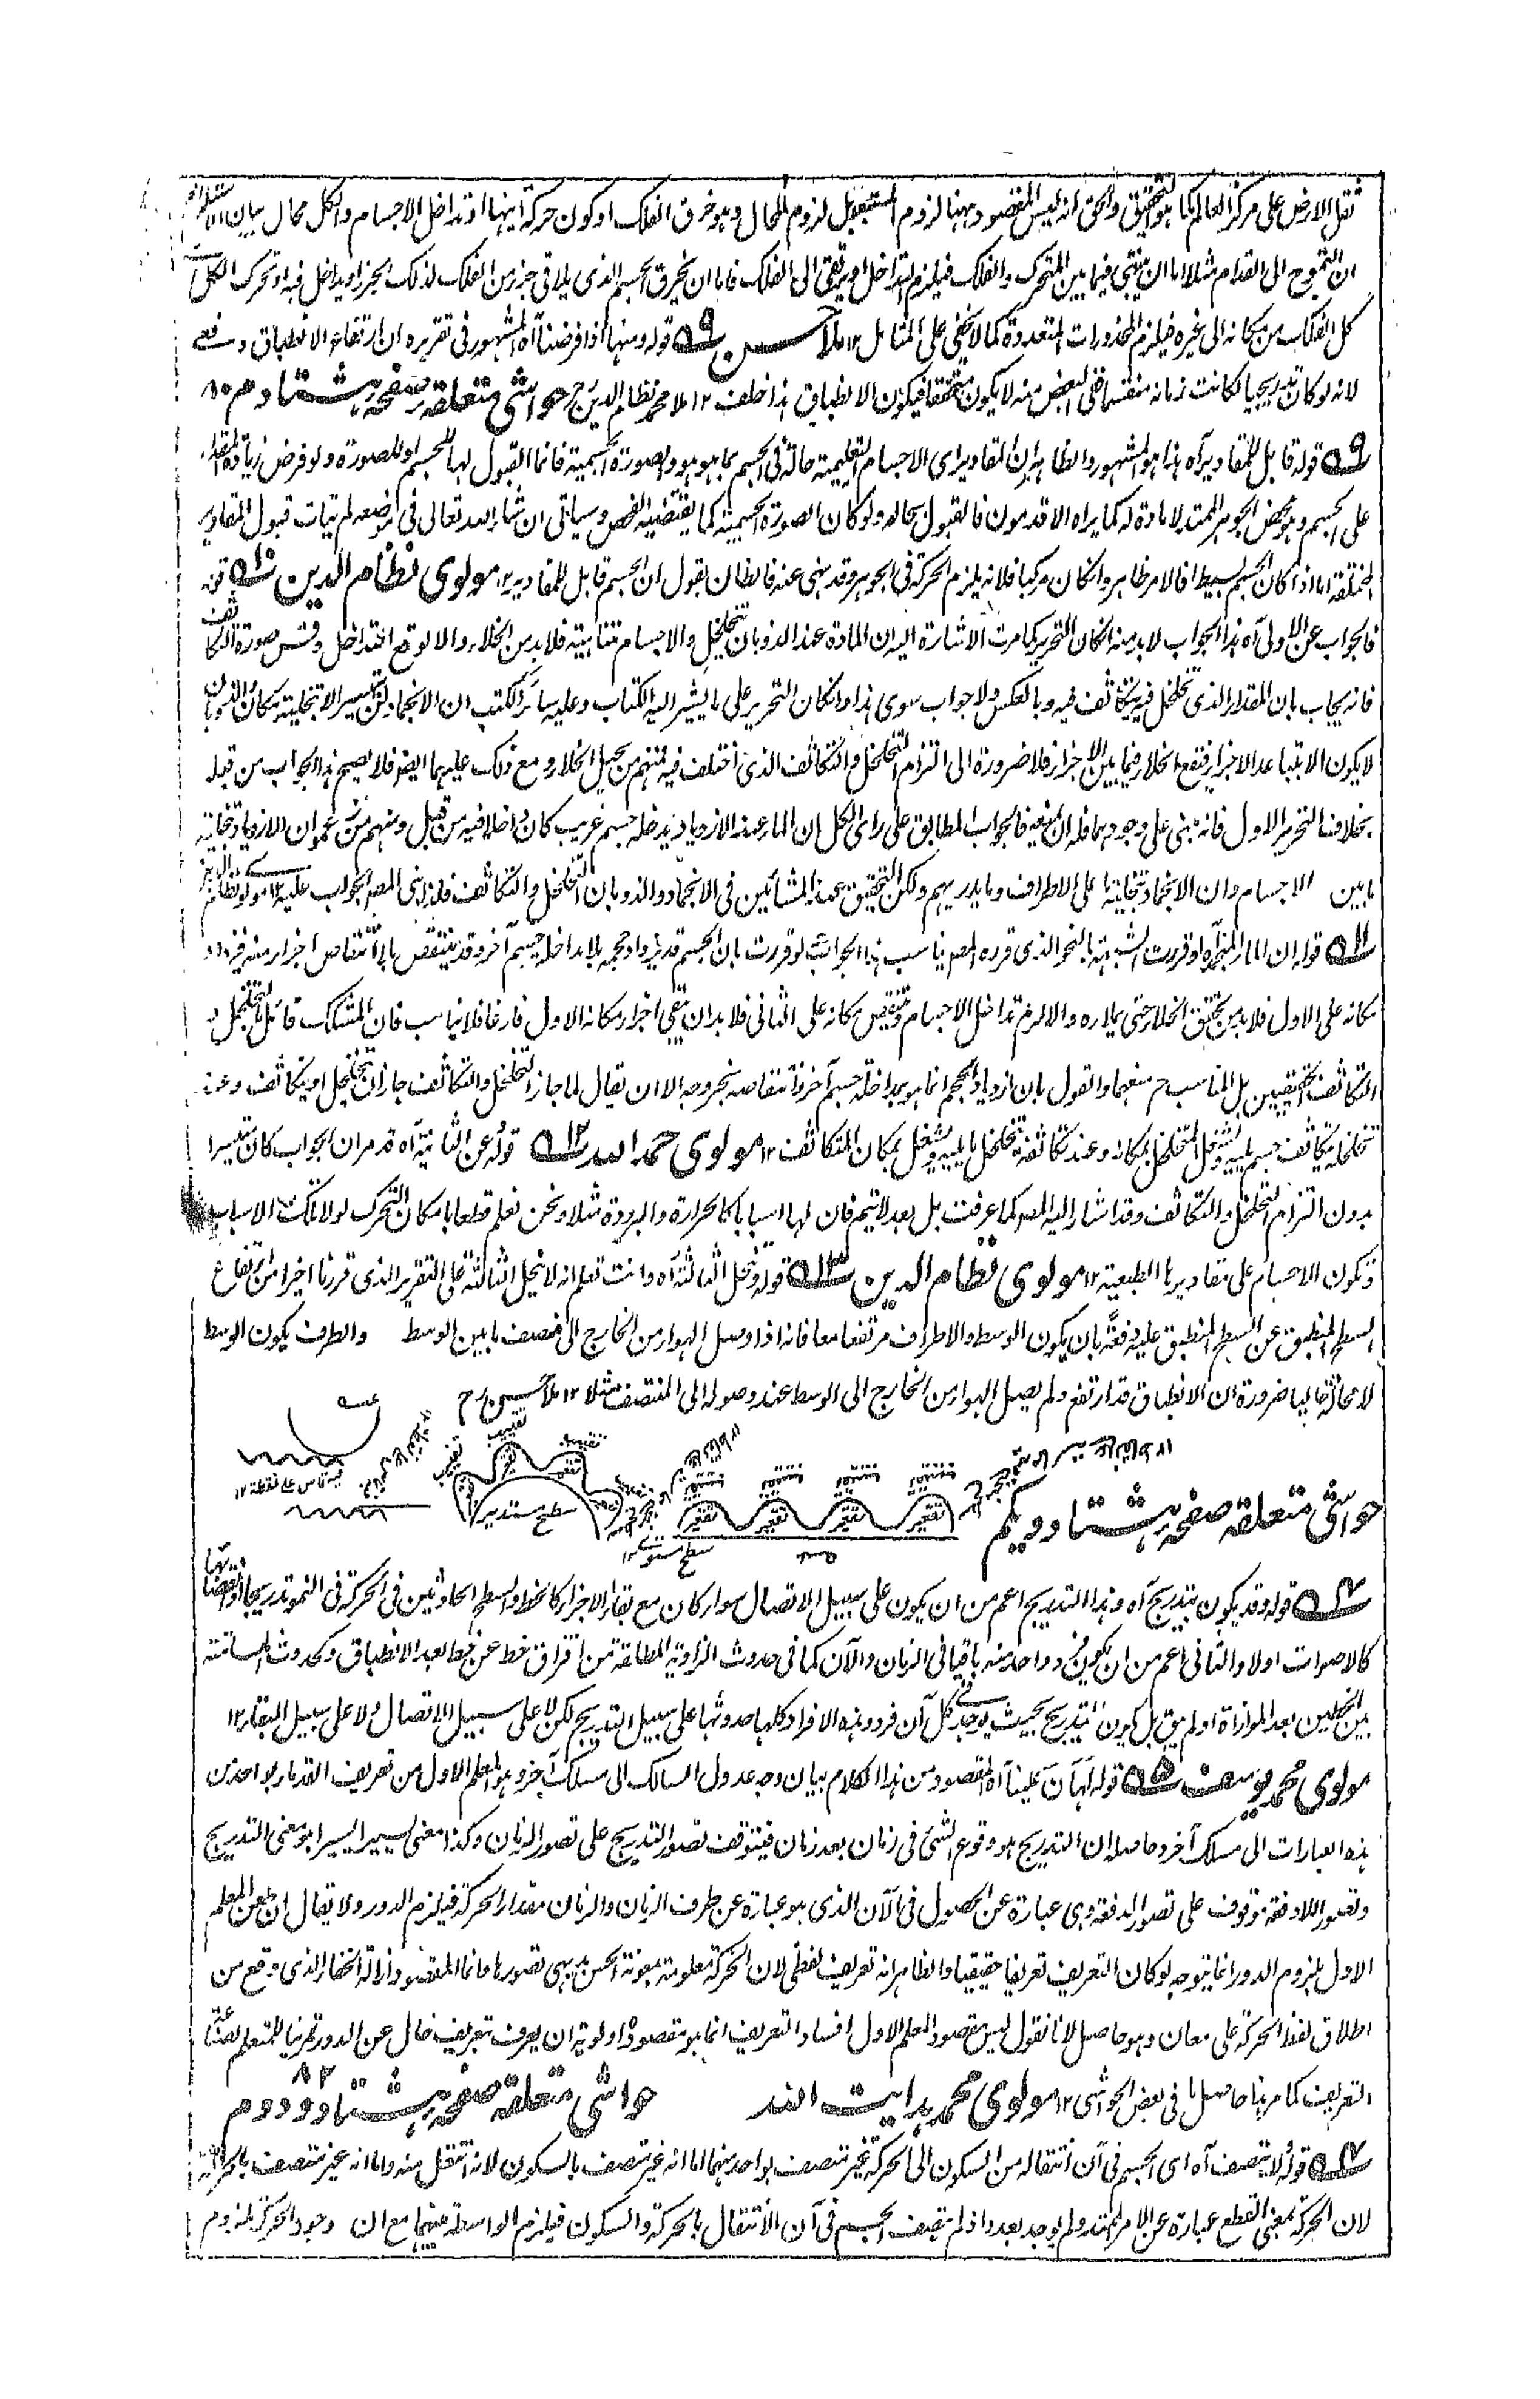 ثقل الارض على مركز العالم كما هو التحقيق والحق انه ليس المقصود ههنا لزوم المستعجل لزوم المحال وهو خرق الفلك او كون حركة اينها او تداخل الاجسام والكل محال بيان
ان التموج الى القدام مثلا اما ان ينتهى فيما بين المتحرك والفلك فيلزم التداخل او يرتقى الى الفلك فاما ان يخرق الجسم الذى يلاقى جزء من الفلك لذلك الجزء او يداخل فيه او تحرك الكل
كل الفلك من مكانه الى غيره فيلزم المحذورات المتعددة كما لا يخفى على المتامل ١٢ ملا حسن ٩ قوله ومنها اذا فرضنا آه المشهور فى تقريره ان ارتفاع الانطباق دفعى
لانه لو كان تدريجيا لكانت زمانه منقسما ففى البعض منه لا يكون متحققا فيكون الانطباق هذا خلف ١٢ ملا محمد نظام الدين رح حواشى متعلقه صفحه هشتادم ٨٠
٩ قوله قابل للمقادير آه هذا هو المشهور والظاهر ان المقادير اى الاجسام التعليمية حالة فى الجسم بما هو هو والصورة الجسمية فانما القبول لها للجسم او للصورة ولو فرض زيادة المقدار
على الجسم وهو محض الجوهر الممتد لا مادة له كما يراه الاقدمون فالقبول بحاله ولو كان الصورة الجسمية كما يقتضيه الفحص وسياتى ان شاء الله تعالى فى موضعه لم يتات قبول المقادير
المختلفة اما اذا كان الجسم بسيطا فالامر ظاهر وان كان مركبا فلانه يلزم الحركة فى الجوهر وقد نهى عنه فالظان يقول ان الجسم قابل للمقادير ١٢ مولوى نظام الدين ١٠ قوله
فالجواب عن الاولى آه هذا الجواب لا بد منه ان كان التحرير كما مرت الاشارة اليه ان المادة عند الذوبان تتخلخل والاجسام متناهية فلا بد من الخلاء والا لوقع التداخل وقس صورة التكاثف
فانه يجاب بان المقدار الذى تخلخل فيه يتكاثف فيه وبالعكس ولا جواب سوى هذا وان كان التحرير على ما يشير اليه الكتاب وعليه سائر الكتب ان الانجماد لا يتيسر الا بتخلية مكان والذوبان
لا يكون الا بتباعد الاجزاء فيقع الخلاء فيما بين الاجزاء فلا ضرورة الى التزام التخلخل والتكاثف الذى اختلف فيه فمنهم من يحيل الخلاء ومع ذلك عليهما ايضا فلا يصح هذا الجواب من قبله
بخلاف التحرير الاول فانه مبنى على وجودهما فله ان يمنعه فالجواب المطابق على راى الكل ان الماء عند الازدياد يدخله جسم غريب كان داخلا فيه من قبل ومنهم من زعموا ان الازدياد بتخلية
ما بين الاجسام وان الانجماد بتخلية ما على الاطراف وما يدريهم ولكن التحقيق عند المشائين فى الانجماد والذوبان التخلخل والتكاثف فلذا بنى المصـ الجواب عليه ١٢ مولوى نظام الدين
١١ قوله ان الماء المنجمد آه لو قررت الشبهة بالنحو الذى قرره المصـ يناسب هذا الجواب لو قررت بان الجسم قد يزداد حجمه بلا مداخلة جسم آخر وقد ينتقص بلا انتقاص اجزاء منه فيزداد
مكانه على الاول فلا بد من تحقق الخلاء حتى يملاءه والا لزم تداخل الاجسام وتنتقص مكانه على الثانى فلا بد ان تبقى اجزاء مكانه الاول فارغا فلا يناسب فان المشكك قائل بالتخلخل و
التكاثف الحقيقيين بل المناسب ح منعهما والقول بان ازدياد الحجم انما هو بمداخلة جسم آخر وانتقاصه بخروجه الا ان يقال لما جاز التخلخل والتكاثف جاز ان يتخلخل او يتكاثف وعند
تخلخله يتكاثف جسم يليه ويشغل المتخلخل مكانه وعند تكاثفه يتخلخل ما يليه ويشغل مكان المتكاثف ١٢ مولوى حمد الله ١٢ قوله وعن الثانية آه قد مر ان الجواب كان متيسرا
بدون التزام التخلخل والتكاثف وقد اشار اليه المصـ كما عرفت بل بعد لا يتم فان لها اسبابا كالحرارة والبرودة مثلا ونحن نعلم قطعا بامكان التحرك لولا تلك الاسباب
وتكون الاجسام على مقاديرها الطبعية ١٢ مولوى نظام الدين ١٣ قوله وتحل الثالثة آه وانت تعلم انه لا تحل الثالثة على التقرير الذى قررنا اخيرا من ارتفاع
السطح المنطبق عن السطح المنطبق عليه دفعة بان يكون الوسط والاطراف مرتفعا معا فانه اذا وصل الهواء من الخارج الى منتصف ما بين الوسط والطرف يكون الوسط
لا محالة خاليا ضرورة ان الانطباق قد ارتفع ولم يصل الهواء من الخارج الى الوسط عند وصوله الى المنتصف مثلا ١٢ ملا حسن رح
تقبيب
تقعير
سطح مستدير
تقعير تقعير تقعير تقعير
سطح مستوى ١٢
حواشى متعلقه صفحه هشتاد و يكم
٤ قوله وقد يكون بتدريج آه وهذا التدريج اعم من ان يكون على سبيل الاتصال سواء كان مع بقاء الاجزاء كالخط والسطح الحادثين فى الحركة فى النمو تدريجا او انقضائها
كالاصوات اولا والثانى اعم من ان يكون فرد واحد منه باقيا فى الزمان والآن كما فى حدوث الزاوية المطابقة من افتراق خط عن خط بعد الانطباق وكحدوث المسامتة
بين الخطين بعد الموازاة او لم يبق بل يكون التدريج بحيث يوجد فى كل آن فرد وهذه الافراد كلها حدوثها على سبيل التدريج لكن لا على سبيل الاتصال ولا على سبيل البقاء ١٢
مولوى محمد يوسف ٥ قوله لهان علينا آه المقصود من هذا الكلام بيان وجه عدول السالك الى مسلك آخر وهو المعلم الاول من تعريف القدماء بواحد من
هذه العبارات الى مسلك آخر وحاصله ان التدريج هو وقوع الشئ فى زمان بعد زمان فيتوقف تصور التدريج على تصور الزمان وكذا معنى يسيرا يسيرا هو معنى التدريج
وتصور اللادفعة موقوف على تصور الدفعة وهى عبارة عن الحصول فى الآن الذى هو عبارة عن طرف الزمان والزمان مقدار الحركة فيلزم الدور ولا يقال ان طعن المعلم
الاول بلزوم الدور انما يتوجه لو كان التعريف تعريفا حقيقيا والظاهر انه تعريف لفظى لان الحركة معلومة بمعونة الحس بديهى تصورها وانما المقصود ازالة الخفاء الذى وقع من
اطلاق لفظ الحركة على معان وهو حاصل لانا نقول ليس مقصود المعلم الاول افساد التعريف انما هو مقصوده اولوية ان يعرف بتعريف خال عن الدور تمرينا للمتعلم
التعريف كما مر بها حاصل ما فى بعض الحواشى ١٢ مولوى محمد هدايت الله حواشى متعلقه صفحه هشتاد و دوم ٨٢
٤ قوله لا يتصف آه اى الجسم فى آن انتقاله من السكون الى الحركة غير متصف بواحد منهما اما انه غير متصف بالسكون لانه انتقل منه واما انه غير متصف بالحركة
لان الحركة بمعنى القطع عبارة عن الامر الممتد ولم يوجد بعد واذ لم يتصف الجسم فى آن الانتقال بالحركة والسكون فيلزم الواسطة بينهما مع ان وجود الحركة بلزوم